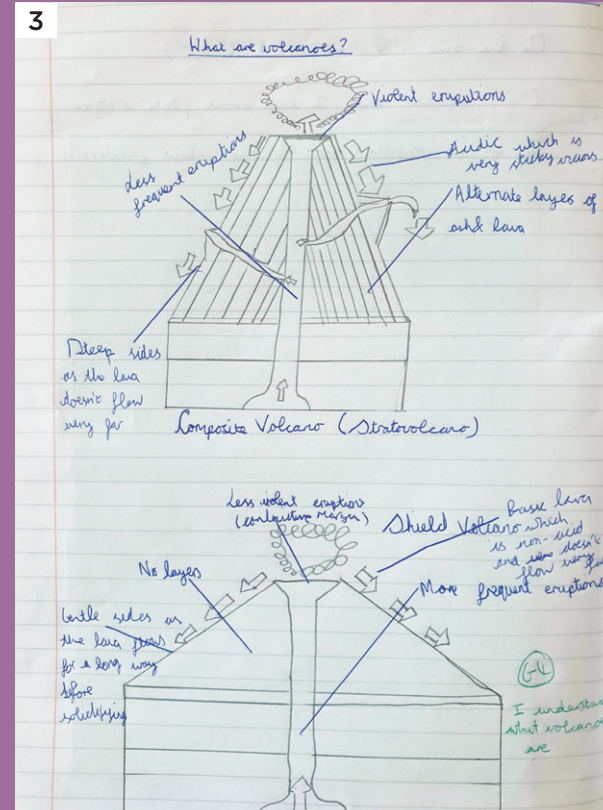 3
What are volcanoes?
Violent eruputions
Less
frequent eruptions
Audic which is
very sticky
Alternate layes of
ash & lava
Steep sides
as the lava
doesn't flow
very far
Composite Volcano (Stratovolcano)
Less violent eruptions
(constructive Margin)
Shield Volcano
Basic lava
which
is non-acid
and doesn't
flow very
No layers
More frequent eruptions
Gentle sides as
the lava flows
for a long way
before
solidifying
G-4
I understan
what volcano
are